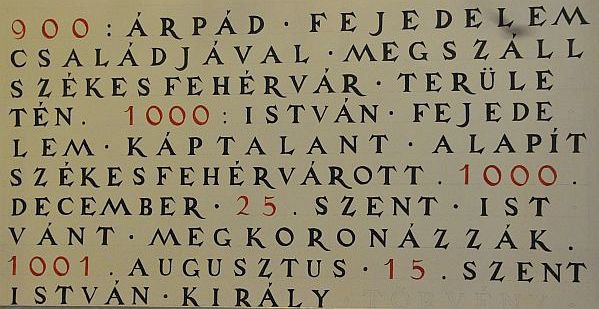 900 : ÁRPÁD · FEJEDELEM
CSALÁDJÁVAL · MEGSZÁLL
SZÉKESFEHÉRVÁR · TERÜLE
TÉN. 1000 : ISTVÁN · FEJEDE
LEM · KÁPTALANT · ALAPÍT
SZÉKESFEHÉRVÁROTT . 1000 .
DECEMBER · 25 . SZENT · IST
VÁNT · MEGKORONÁZZÁK .
1001 . AUGUSZTUS · 15 . SZENT
ISTVÁN · KIRÁLY TÖRVÉNY